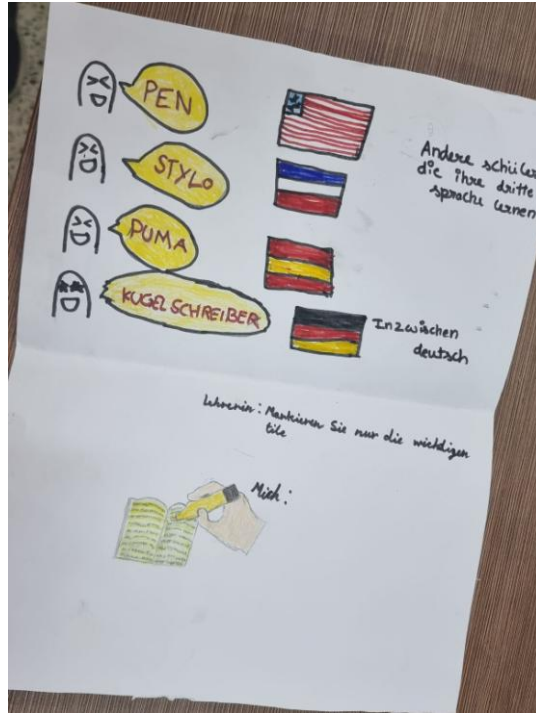 PEN
STYLO
PUMA
KUGELSCHREIBER
Andere schüler
die ihre dritte
sprache lernen
Inzwischen
deutsch
Lehrerin: Markieren Sie nur die wichtigen
tile
Mich: